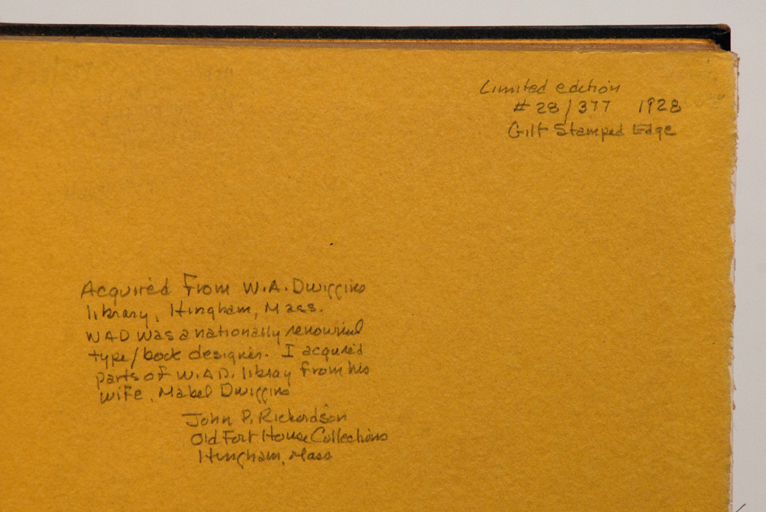 Limited edition
# 28/377 1928
Gilt Stamped Edge
Acquired From W.A. Dwiggins
library, Hingham, Mass.
WAD was a nationally renownd
type/book designer. I acquired
parts of W.A.D. library from his
wife, Mabel Dwiggins
John P. Richardson
Old Fort House Collections
Hingham, Mass